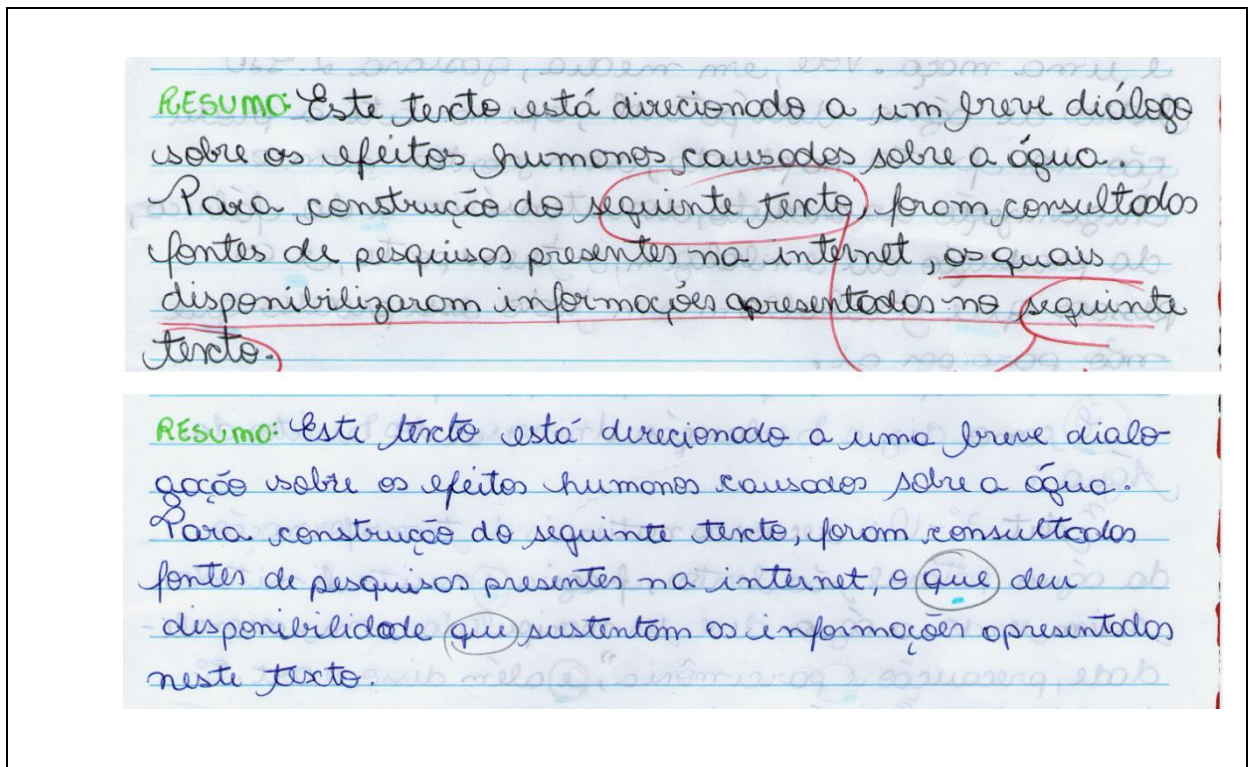 RESUMO: Este texto está direcionado a um breve diálogo
sobre os efeitos humanos causados sobre a água.
Para construção do seguinte texto, foram consultados
fontes de pesquisas presentes na internet, as quais
disponibilizaram informações apresentadas no seguinte
texto.
RESUMO: Este texto está direcionado a uma breve dialo-
gação sobre os efeitos humanos causados sobre a água.
Para construção do seguinte texto, foram consultados
fontes de pesquisas presentes na internet, o que deu
disponibilidade que sustentam as informações apresentadas
neste texto.